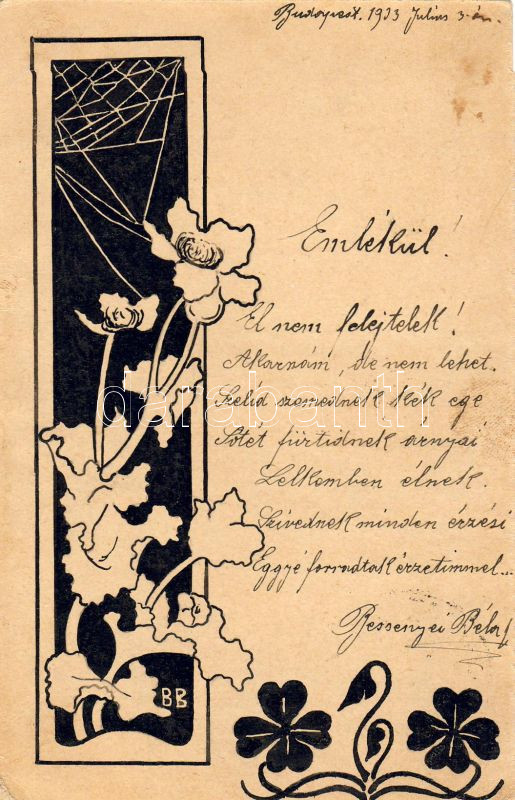 Budapest. 1933 Julius 3-án.
Emlékül!
El nem felejtelek!
Akarnám, de nem lehet.
Szelíd szemednek kék ege
Sötét fürtidnek árnyai
Lelkemben élnek.
Szivednek minden érzési
Eggyé forradtak érzetimmel...
Bessenyei Béla
BB
darabanth